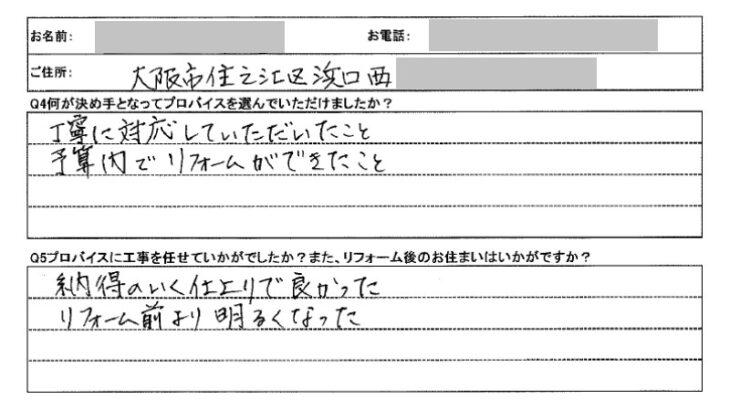 お名前: お電話:
ご住所: 大阪市住之江区浜口西
Q4何が決め手となってプロバイスを選んでいただけましたか？
丁寧に対応していただいたこと
予算内でリフォームができたこと
Q5プロバイスに工事を任せていかがでしたか？また、リフォーム後のお住まいはいかがですか？
納得のいく仕上りで良かった
リフォーム前より明るくなった